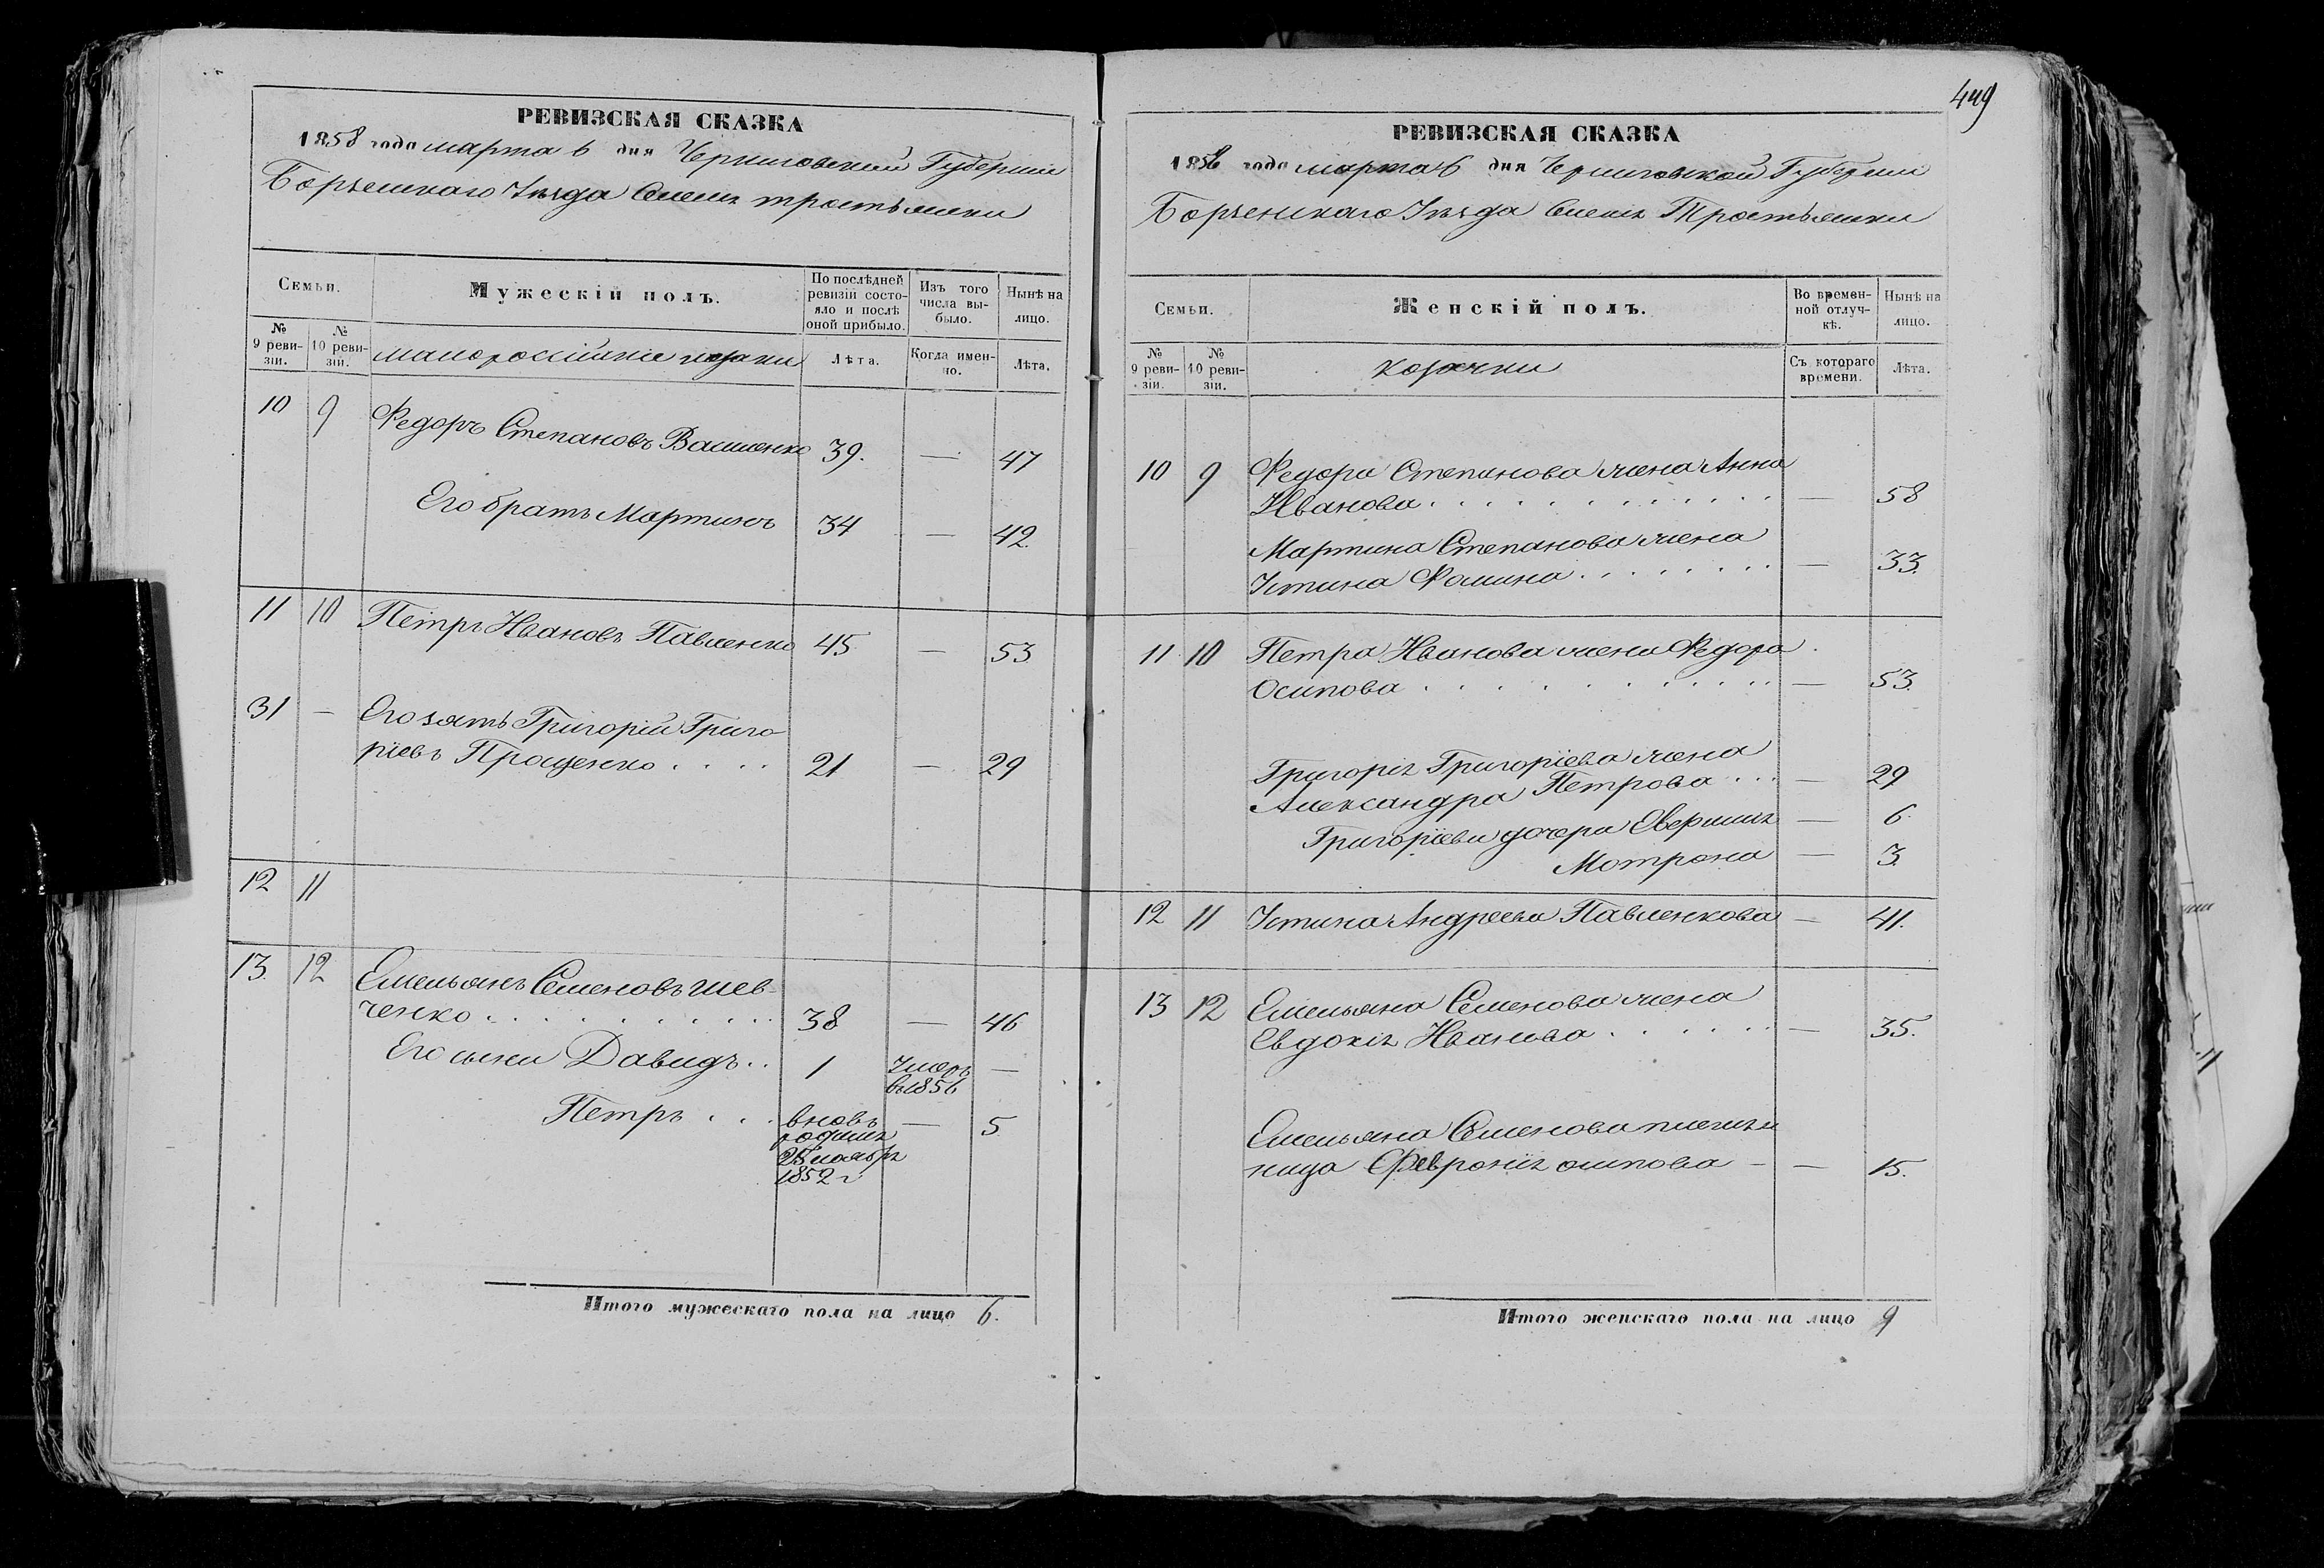 РЕВИЗСКАЯ СКАЗКА
1858 года марта 6 дня Черниговской Губернии
Борзенскаго Уезда Тростянки
Семьи.
Мужескій полъ.
По послѣдней ревизіи состояло и послѣ оной прибыло.
Изъ того числа выбыло.
Нынѣ на лицо.
№ 9 ревизіи.
№ 10 ревизіи.
малороссійские козаки
Лѣта.
Когда именно.
Лѣта.
10 9 Федоръ Степановъ 39. — 47
Его братъ Мартинъ 34 — 42.
11 10 Петръ Ивановъ Павленко 45 — 53
31 — Его зять Григорій Григо
ріевъ Проценко . . . . 21 — 29
12 11
13. 12 Емельянъ Семеновъ Шев-
ченко . . . . . . . . . 38 — 46
Его сыни Давидъ . . 1 Умеръ —
в 1856
Петръ . . . вновь — 5
25 ноября
1852 г
Итого мужескаго пола на лицо 6.
449
РЕВИЗСКАЯ СКАЗКА
1858 года марта 6 дня Черниговской Губернии
Борзенскаго Уезда Тростянки
Семьи.
Женскій полъ.
Во временной отлучкѣ.
Нынѣ на лицо.
№ 9 ревизіи.
№ 10 ревизіи.
козачки
Съ котораго времени.
Лѣта.
10 9 Федора Степанова жена Анна
Иванова . . . . . . . . . . . — 58
Мартина Степанова жена
Устина Фомина . . . . . . . . — 33.
11 10 Петра Иванова жена Федора
Осипова . . . . . . . . . . . — 53.
Григорія Григоріева жена
Александра Петрова . . . — 29
Григоріеви дочери — 6.
Мотрона — 3
12 11 Устина Андреева Павленкова — 41.
13 12 Емельяна Семенова жена
Евдокія Иванова . . . . . . — 35.
Емельяна Семенова племян
ница Февронія Осипова — — 15.
Итого женскаго пола на лицо 9